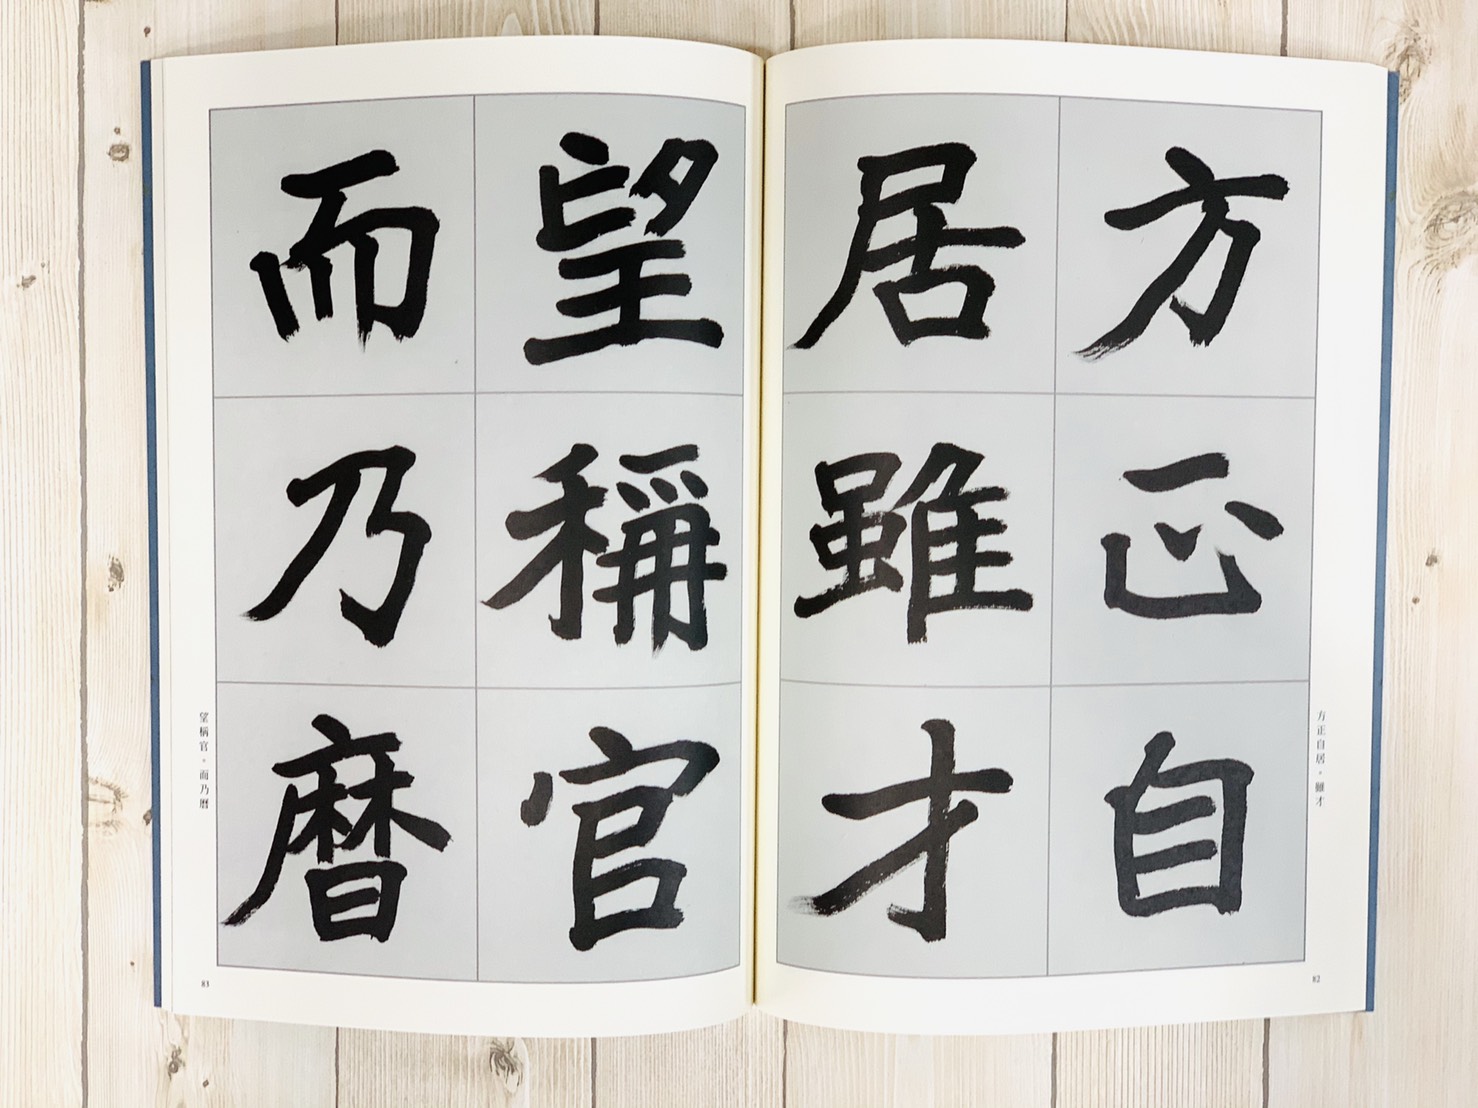 方正自
居雖才
方正自居。雖才
82
望稱官
而乃曆
望稱官。而乃曆
83